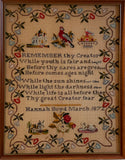 REMEMBER thy Creator
While youth is fair and
Before thy cares are
Before comes aged night
While the sun shines
While light the darkness
While life is all before thee
Thy great Creator fear
Hannah March